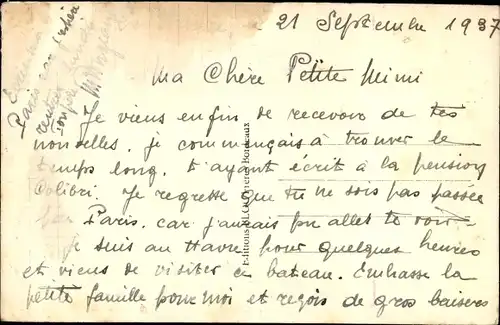 21 Septembre 1937
Ma Chère Petite Mimi
Je viens enfin de recevoir de tes
nouvelles. je commençais à trouver le
temps long. t'ayant écrit à la pension
Colibri. Je regrette que tu ne sois pas passée
par Paris. car j'aurais pu aller te voir.
Je suis au Havre pour quelques heures
et viens de visiter ce bateau. Embrasse la
petite famille pour moi et reçois de gros baisers
Paris
Bordeaux